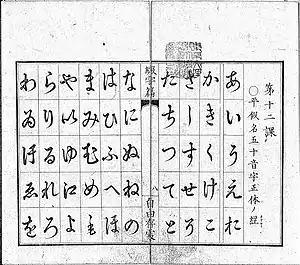 第十二課
○平假名五十音字正体
あいうえお
かきくけこ
さしすせそ
たちつてと
綴字篇
八
なにぬねの
はひふへほ
まみむめも
やいゆ江よ
らりるれろ
わゐゑを